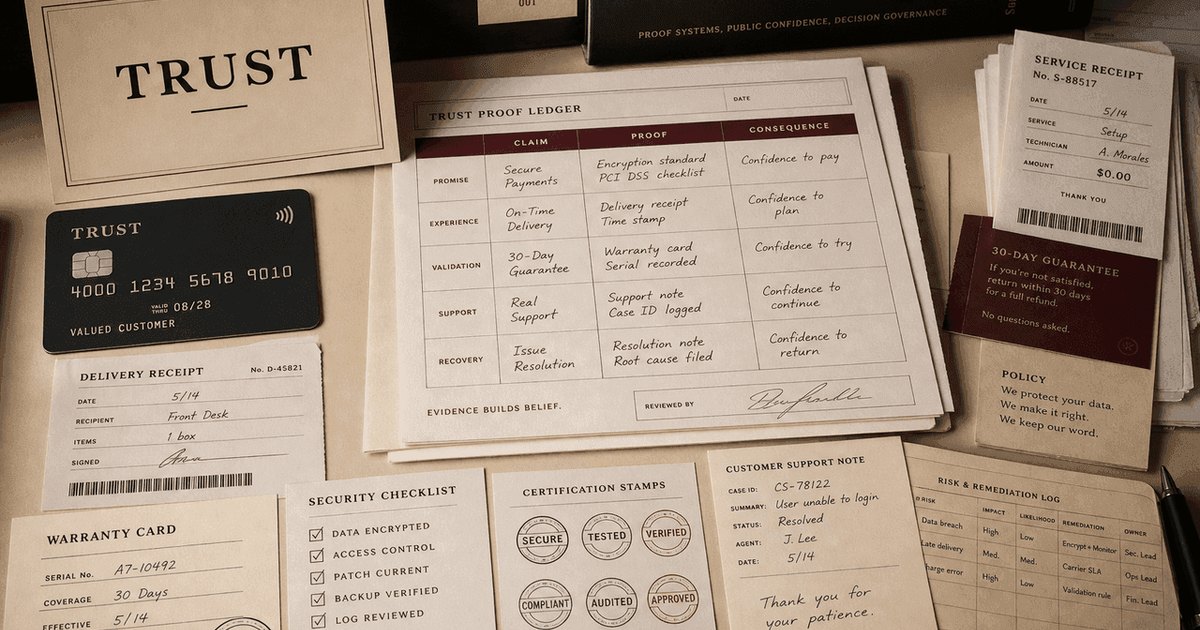 TRUST
001
PROOF SYSTEMS, PUBLIC CONFIDENCE, DECISION GOVERNANCE
TRUST PROOF LEDGER
DATE
CLAIM PROOF CONSEQUENCE
PROMISE Secure Payments Encryption standard PCI DSS checklist Confidence to pay
EXPERIENCE On-Time Delivery Delivery receipt Time stamp Confidence to plan
VALIDATION 30-Day Guarantee Warranty card Serial recorded Confidence to try
SUPPORT Real Support Support note Case ID logged Confidence to continue
RECOVERY Issue Resolution Resolution note Root cause filed Confidence to return
EVIDENCE BUILDS BELIEF.
REVIEWED BY
SERVICE RECEIPT
No. S-88517
DATE 5/14
SERVICE Setup
TECHNICIAN A. Morales
AMOUNT $0.00
THANK YOU
30-DAY GUARANTEE
If you're not satisfied,
return within 30 days
for a full refund.
No questions asked.
POLICY
We protect your data.
We make it right.
We keep our word.
TRUST
4000 1234 5678 9010
VALID THRU 08/28
VALUED CUSTOMER
DELIVERY RECEIPT No. D-45821
DATE 5/14
RECIPIENT Front Desk
ITEMS 1 box
SIGNED
WARRANTY CARD
SERIAL No. A7-10492
COVERAGE 30 Days
EFFECTIVE 5/14
SECURITY CHECKLIST
DATA ENCRYPTED
ACCESS CONTROL
PATCH CURRENT
BACKUP VERIFIED
LOG REVIEWED
CERTIFICATION STAMPS
SECURE TESTED VERIFIED
COMPLIANT AUDITED APPROVED
CUSTOMER SUPPORT NOTE
CASE ID: CS-78122
SUMMARY: User unable to login
STATUS: Resolved
AGENT: J. Lee
DATE: 5/14
Thank you for
your patience.
RISK & REMEDIATION LOG
RISK IMPACT LIKELIHOOD REMEDIATION OWNER
Data breach High Low Encrypt + Monitor Sec. Lead
Late delivery Med. Med. Carrier SLA Ops Lead
harge error High Low Validation rule Fin. Lead